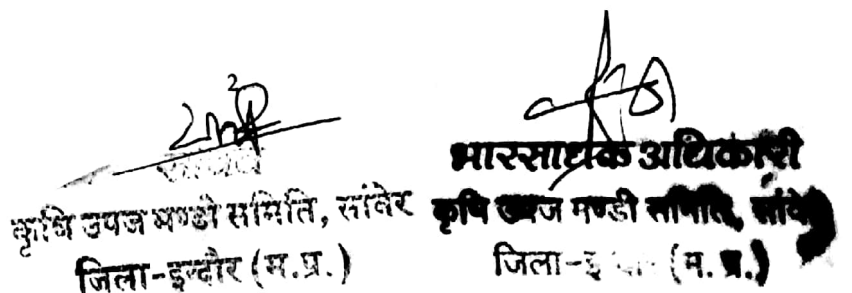 कृषि उपज मण्डी समिति, सांवेर
जिला-इन्दौर (म.प्र.)
भारसाधक अधिकारी
कृषि उपज मण्डी समिति, सांवेर
जिला-इन्दौर (म. प्र.)